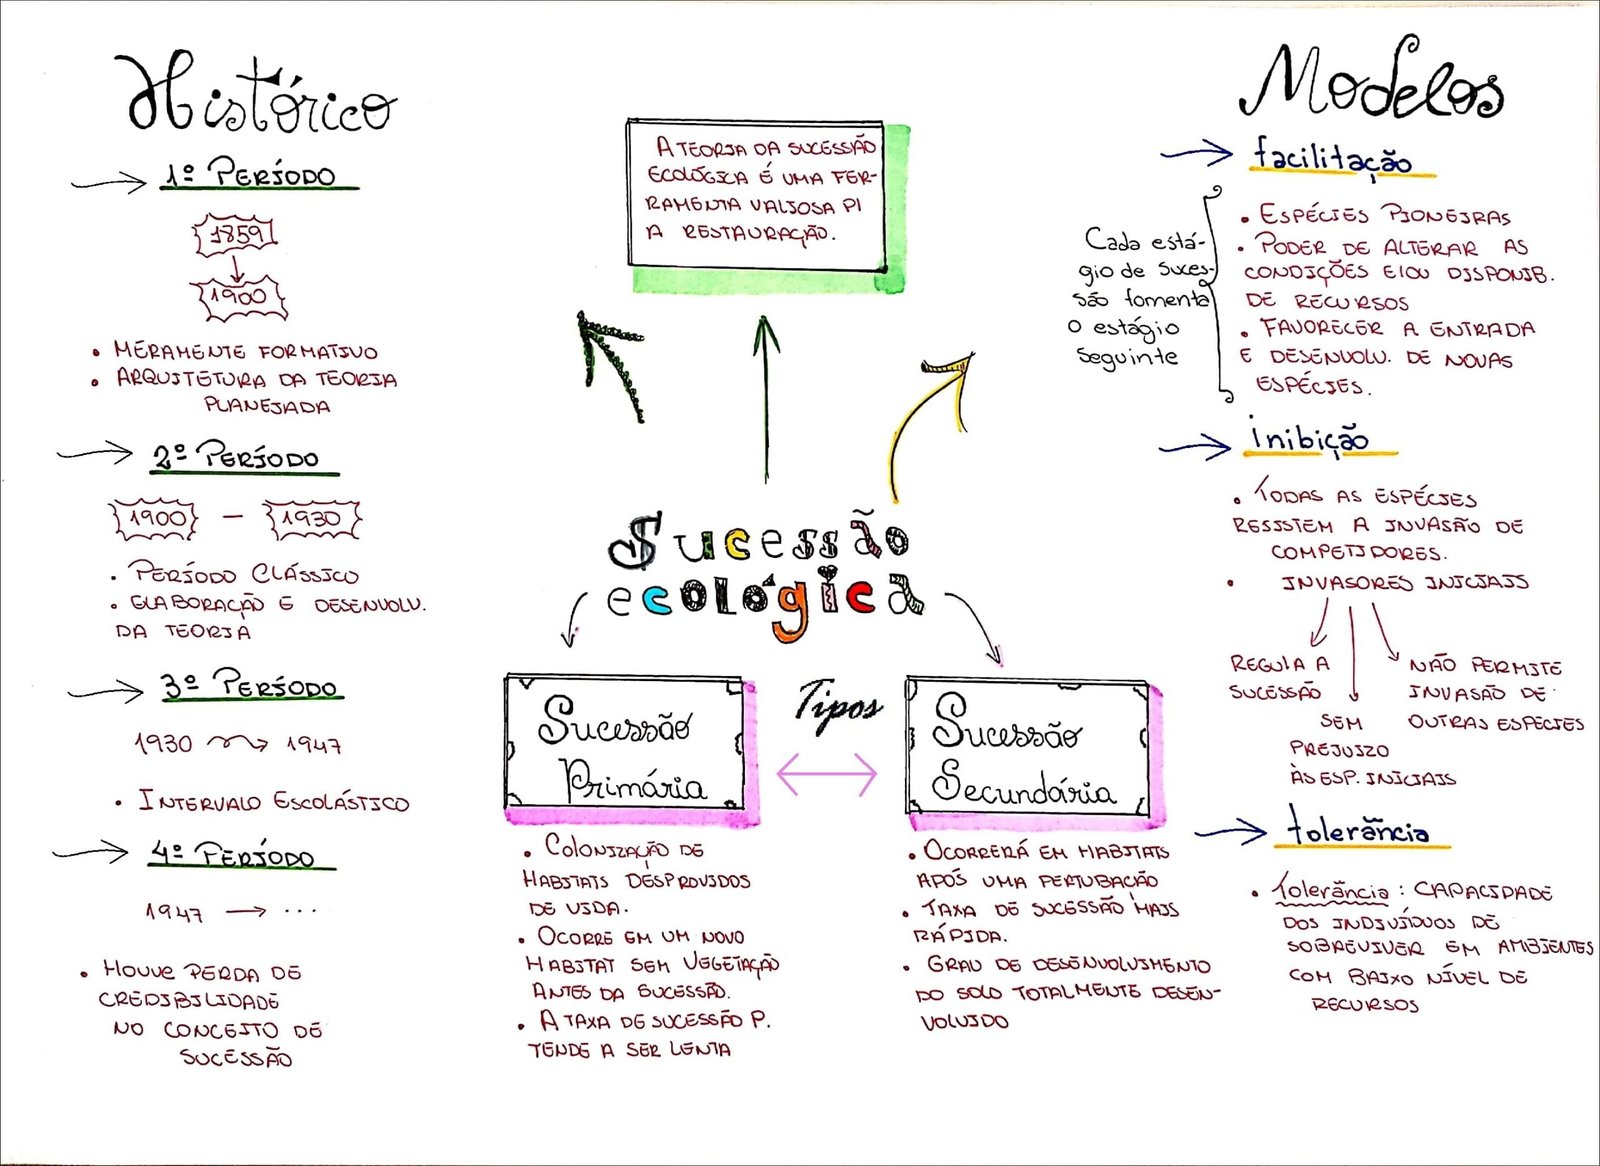 Histórico
1º PERÍODO
1859
1900
• MERAMENTE FORMATIVO
• ARQUITETURA DA TEORIA
PLANEJADA
2º PERÍODO
1900 — 1930
• PERÍODO CLÁSSICO
• ELABORAÇÃO E DESENVOLV.
DA TEORIA
3º PERÍODO
1930 → 1947
• INTERVALO ESCOLÁSTICO
4º PERÍODO
1947 → ...
• HOUVE PERDA DE
CREDIBILIDADE
NO CONCEITO DE
SUCESSÃO
A TEORIA DA SUCESSÃO
ECOLÓGICA É UMA FER-
RAMENTA VALIOSA P/
A RESTAURAÇÃO.
Sucessão
ecológica
Tipos
Sucessão
Primária
• COLONIZAÇÃO DE
HABITATS DESPROVIDOS
DE VIDA.
• OCORRE EM UM NOVO
HABITAT SEM VEGETAÇÃO
ANTES DA SUCESSÃO.
• A TAXA DE SUCESSÃO P.
TENDE A SER LENTA
Sucessão
Secundária
• OCORRERÁ EM HABITATS
APÓS UMA PERTUBAÇÃO
• TAXA DE SUCESSÃO MAIS
RÁPIDA.
• GRAU DE DESENVOLVIMENTO
DO SOLO TOTALMENTE DESEN-
VOLVIDO
Modelos
facilitação
Cada está-
gio de suces-
são fomenta
o estágio
seguinte
• ESPÉCIES PIONEIRAS
• PODER DE ALTERAR AS
CONDIÇÕES E/OU DISPONIB.
DE RECURSOS
• FAVORECER A ENTRADA
E DESENVOLV. DE NOVAS
ESPÉCIES.
inibição
• TODAS AS ESPÉCIES
RESISTEM A INVASÃO DE
COMPETIDORES.
• INVASORES INICIAIS
REGULA A
SUCESSÃO
SEM
PREJUIZO
ÀS ESP. INICIAIS
NÃO PERMITE
INVASÃO DE
OUTRAS ESPÉCIES
tolerância
• Tolerância: CAPACIDADE
DOS INDIVÍDUOS DE
SOBREVIVER EM AMBIENTES
COM BAIXO NÍVEL DE
RECURSOS